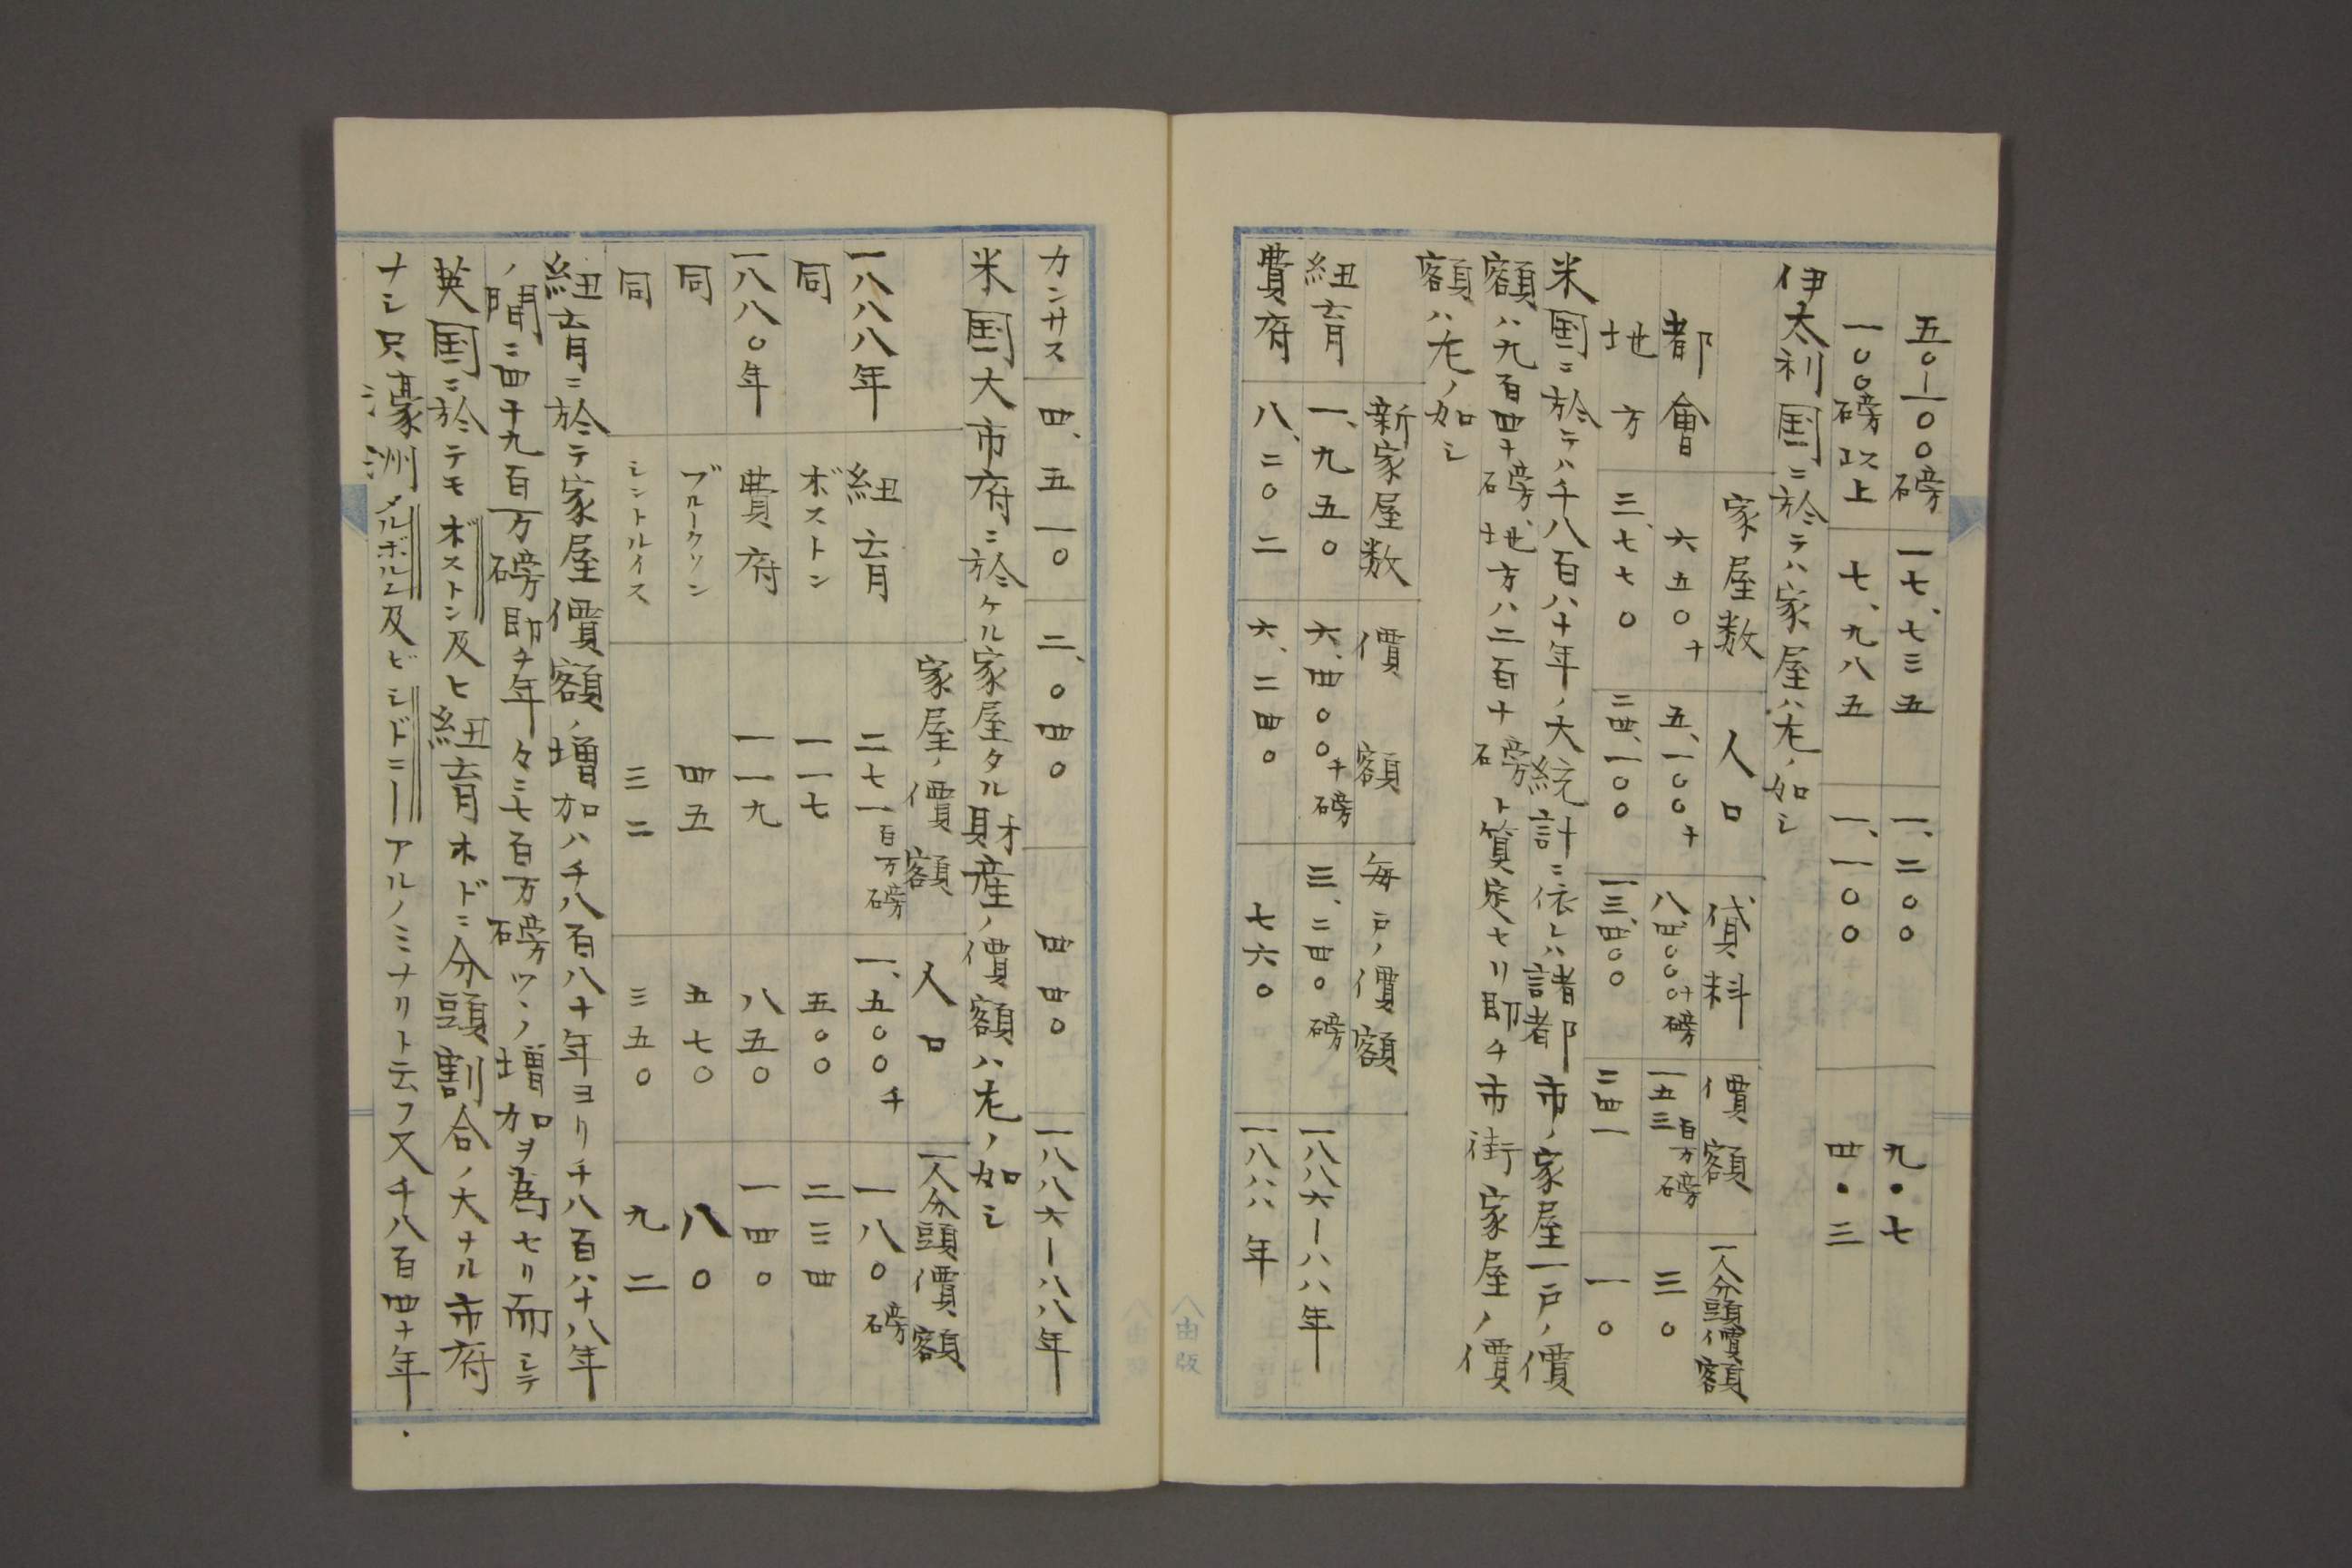 五〇―一〇〇磅 一七、七三五 一、二〇〇 九・七
一〇〇磅以上 七、九八五 一、一〇〇 四・三
伊太利国ニ於テハ家屋ハ左ノ如シ
家屋数 人口 貸料 價額 一人分頭價額
都會 六五〇千 五、一〇〇千 八、四〇〇千磅 一五三百万磅 三〇
地方 三、七七〇 二四、一〇〇 一三、四〇〇 二四一 一〇
米国ニ於テハ千八百八十年ノ大統計ニ依レハ諸都市ノ家屋一戸ノ價
額ハ九百四十磅地方ハ二百十磅ト算定セリ即チ市街家屋ノ價
額ハ左ノ如シ
新家屋数 價額 毎戸ノ價額
紐育 一、九五〇 六、四〇〇千磅 三、二四〇磅 一八八六―八八年
費府 八、二〇二 六、二四〇 七六〇 一八八八年
カンサス 四、五一〇 二、〇四〇 四四〇 一八八六―八八年
米国大市府ニ於ケル家屋タル財産ノ價額ハ左ノ如シ
家屋ノ價額 人口 一人分頭價額
一八八八年 紐育 二七一百万磅 一、五〇〇千 一八〇磅
同 ボストン 一一七 五〇〇 二三四
一八八〇年 費府 一一九 八五〇 一四〇
同 ブルークリン 四五 五七〇 八〇
同 シントルイス 三二 三五〇 九二
紐育ニ於テ家屋價額ノ増加ハ千八百八十年ヨリ千八百八十八年
ノ間ニ四千九百万磅即チ年々ニ七百万磅ツヽノ増加ヲ為セリ而シテ
英国ニ於テモボストン及ヒ紐育ホドニ分頭割合ノ大ナル市府
ナシ只濠洲メルボルエ及ビシドニーアルノミナリト云フ又千八百四十年